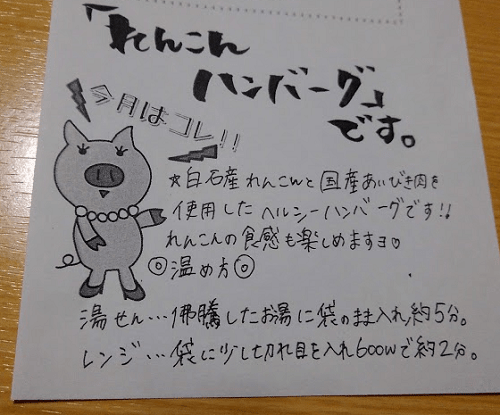 「れんこん
ハンバーグ」
です。
今月はコレ!!
☆白石産れんこんと国産あいびき肉を
使用したヘルシーハンバーグです!!
れんこんの食感も楽しめますヨ♡
◎温め方◎
湯せん…沸騰したお湯に袋のまま入れ約5分。
レンジ…袋に少し切れ目を入れ600Wで約2分。